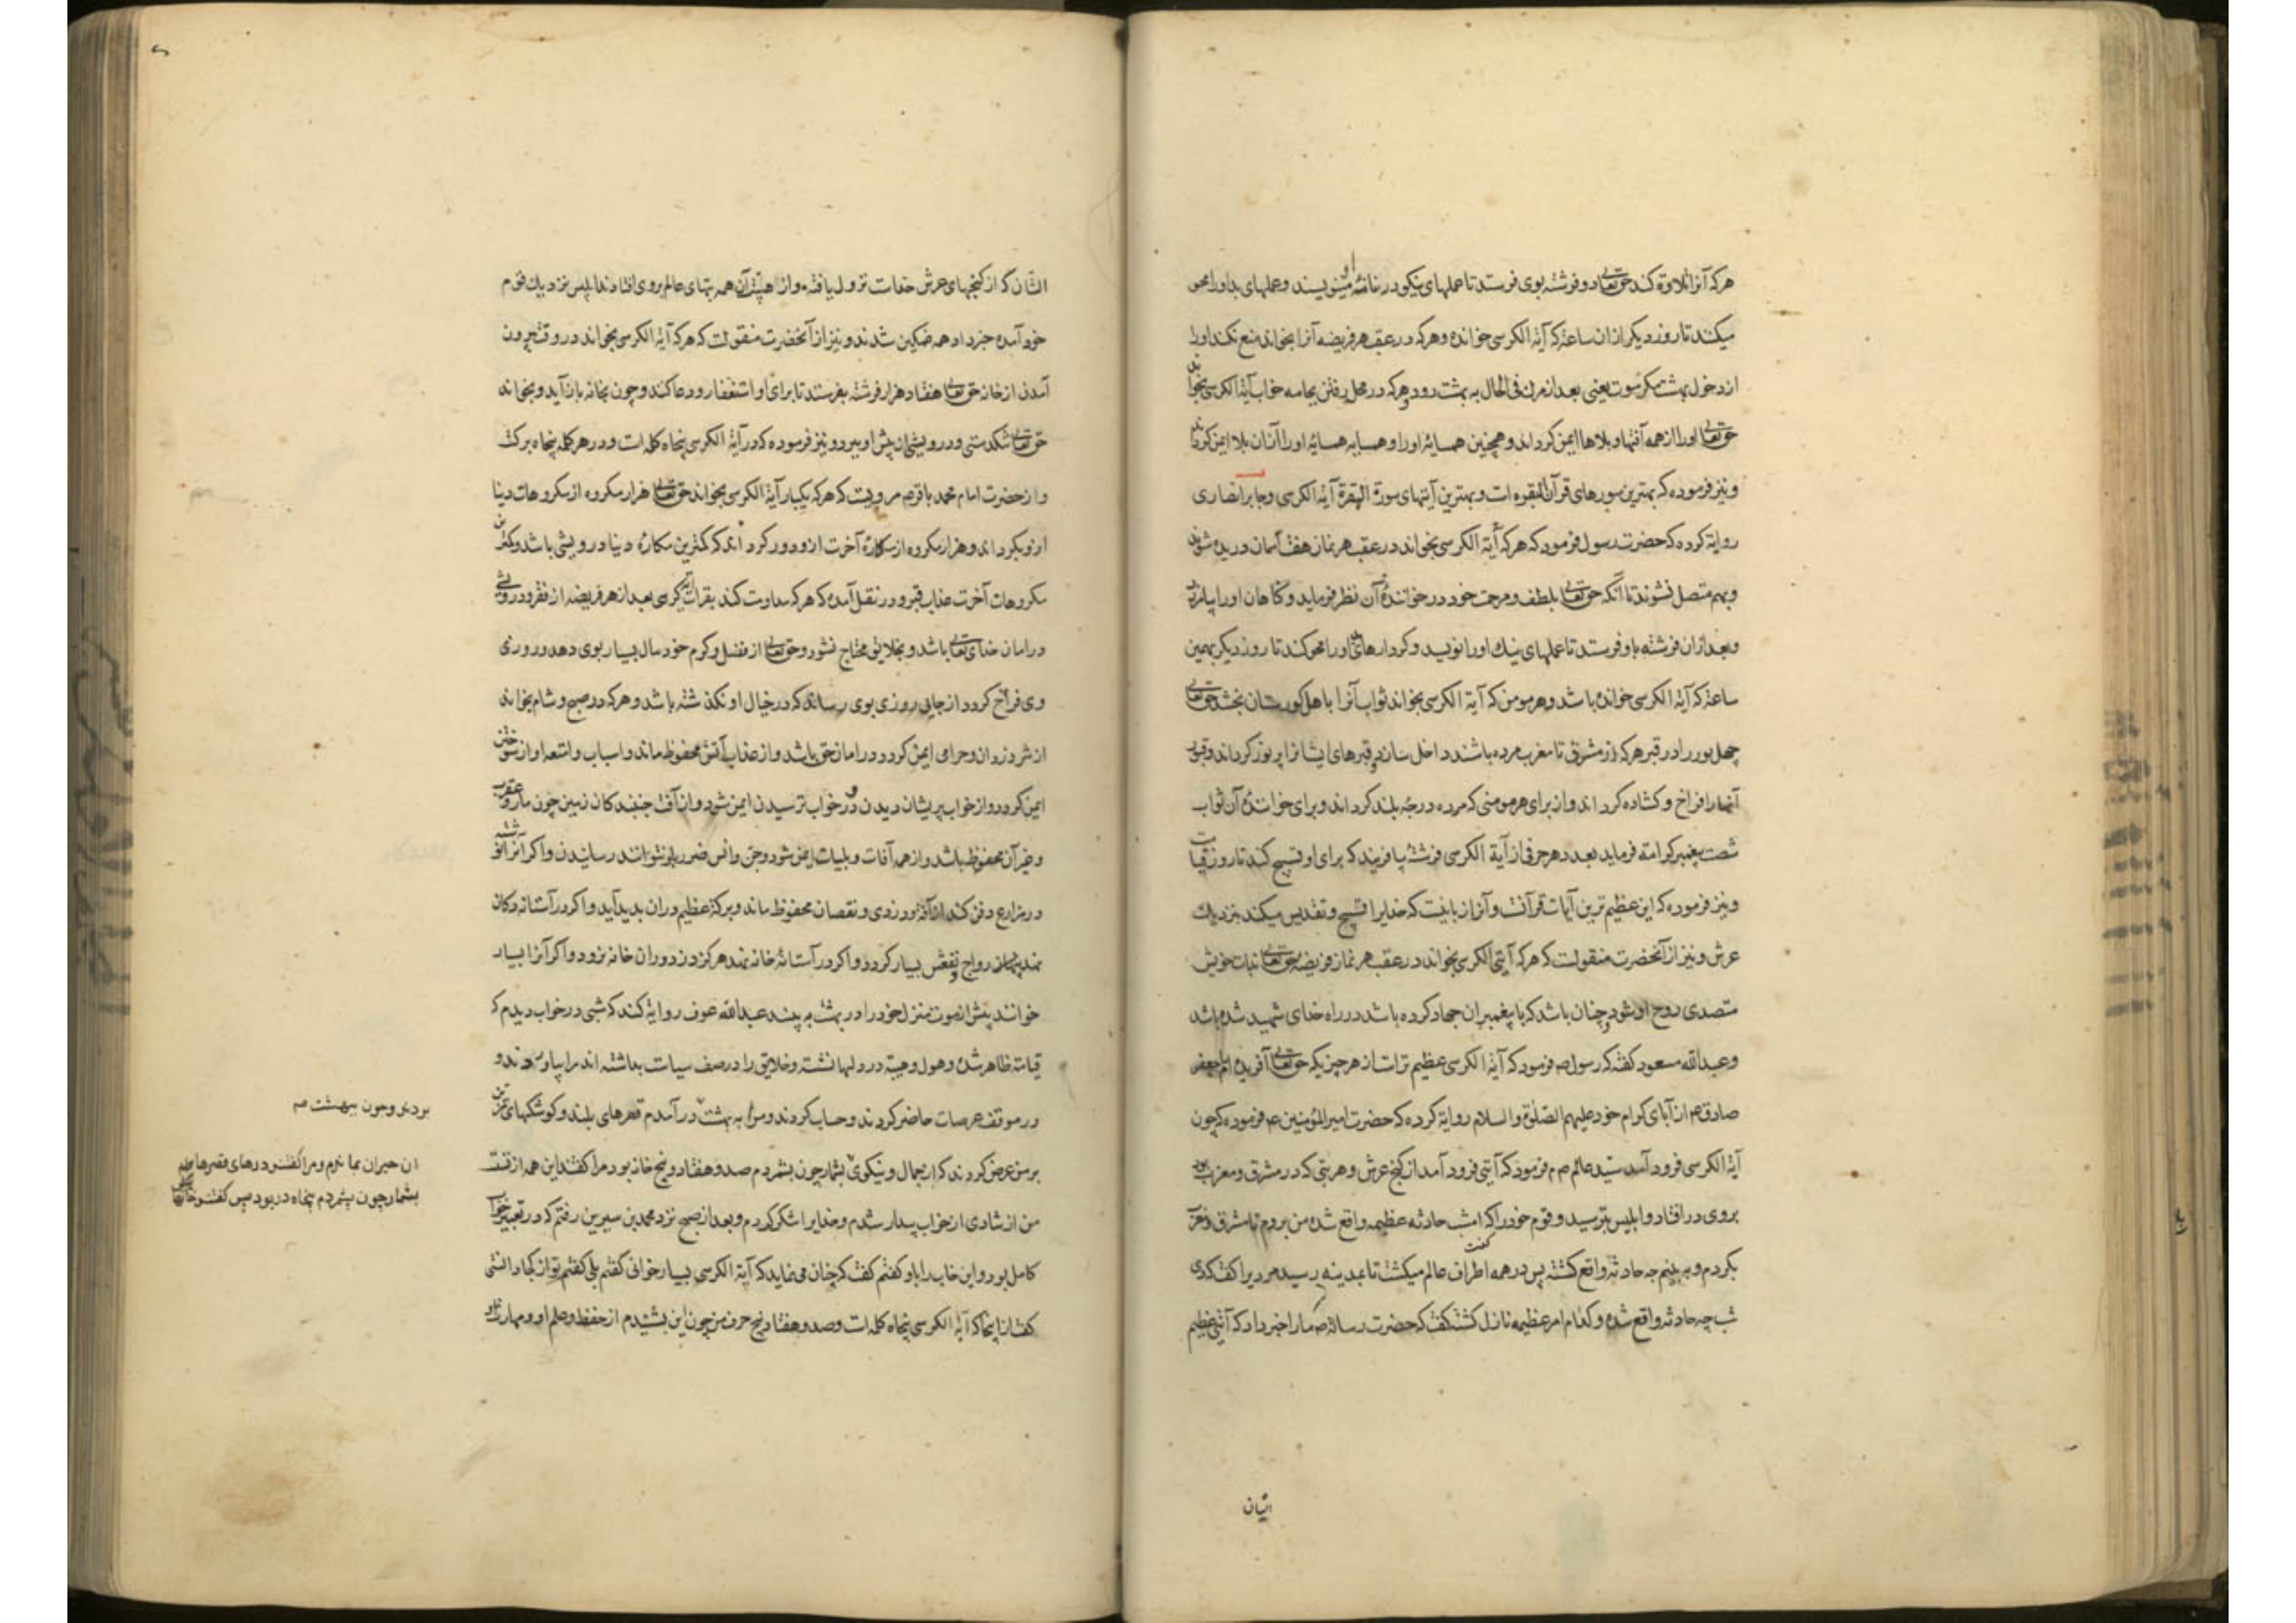 هرکه آنرا تلاوة کند حق تعالی دو فرشته بوی فرستد تا عملهای نیکو در نامهٔ او مینویسند و عملهای بد او را محو
میکند تا روز دیکر ازان ساعة که آیة الکرسی خوانده و هرکه در عقب هر فریضه آنرا بخواند منع نکند او را
از دخول بهشت مکر موت یعنی بعد از مرک فی الحال به بهشت رود و هرکه در محل رفتن بجامه خواب آیة الکرسی بخواند
حق تعالی او را از همه آفتها و بلاها ایمن کرداند و همچنین همسایهٔ او را و همسایه همسایهٔ او را از ان بلا ایمن کرداند
و نیز فرموده که بهترین سورهای قرآن البقره است و بهترین آیتهای سورة البقرة آیة الکرسی و جابر انصاری
روایة کرده که حضرت رسول فرمود که هرکه آیة الکرسی بخواند در عقب هر نماز هفت آسمان دریده شوند
و بهم متصل نشوند تا آنکه حق تعالی بلطف و مرحمت خود در خوانندهٔ آن نظر فرماید و کناهان او را بیامرزد
و بعد ازان فرشته باو فرستد تا عملهای نیک او را نویسد و کردارهای او را محو کند تا روز دیکر بهمین
ساعة که آیة الکرسی خوانده باشد و هر مومن که آیة الکرسی بخواند ثواب آنرا باهل کورستان بخشد حق تعالی
چهل نور را در قبر هرکه از مشرق تا مغرب مرده باشند داخل سازد و قبرهای ایشانرا پر نور کرداند و قبر
آنها را فراخ و کشاده کرداند و از برای هر مومنی که مرده درجه بلند کرداند و برای خوانندهٔ آن ثواب
شصت پیغمبر کرامة فرماید بعدد هر حرفی از آیة الکرسی فرشتهٔ بیافریند که برای او تسبیح کند تا روز قیامت
و نیز فرموده که این عظیم ترین آیات قرآنست و آنرا زبانیست که خدایرا تسبیح و تقدیس میکند بنزدیک
عرش و نیز از آنحضرت منقولست که هرکه آیتی الکرسی بخواند در عقب هر نماز فریضه حق تعالی بذات خویش
متصدی روح او شود و چنان باشد که با پیغمبران جهاد کرده باشد در راه خدای شهید شده باشد
و عبدالله مسعود کفته که رسول ص فرمود که آیة الکرسی عظیم تر است از هر چیزیکه حق تعالی آفریده امام جعفر
صادق ع از آبای کرام خود علیهم الصلوة و السلام روایة کرده که حضرت امیر المؤمنین ع فرموده که چون
آیة الکرسی فرود آمد سید عالم ص فرمود که آیتی فرود آمد از کنج عرش و هر بتی که در مشرق و مغرب بود
بروی در افتاد و ابلیس بترسید و قوم خود را کفت که امشب حادثه عظیمه واقع شده من بروم تا مشرق و مغرب
بکردم و به بینم چه حادثه واقع کشته پس در همه اطراف عالم میکشت تا بمدینه رسید مردیرا کفت که دی
شب چه حادثه واقع شده و کدام امر عظیمه نازل کشته کفت که حضرت رسالة ص ما را خبر داد که آیتی عظیم
الشان
الشان که از کنجهای عرش خداست نزول یافته و از هیبت آن همه بتهای عالم بروی افتادند ابلیس نزدیک قوم
خود آمده خبر داد همه غمکین شدند و نیز از آنحضرت منقولست که هرکه آیة الکرسی بخواند در وقت بیرون
آمدن از خانه حق تعالی هفتاد هزار فرشته بفرستد تا برای او استغفار و دعا کنند و چون بخانه باز آید و بخواند
حق تعالی تنکدستی و درویشی از پیش او ببرد و نیز فرموده که در آیة الکرسی پنجاه کلمه است و در هر کلمه پنجاه برکت
و از حضرت امام محمد باقر ع مرویست که هرکه یکبار آیة الکرسی بخواند حق تعالی هزار مکروه از مکروهات دنیا
ازو بکرداند و هزار مکروه از مکارهٔ آخرت ازو دور کرداند که کمترین مکارهٔ دنیا درویشی باشد و کمترین
مکروهات آخرت عذاب قبر و در نقل آمده که هرکه مداومت کند بقرات آیة کرسی بعد از هر فریضه از فقر و درویشی
در امان خدای تعالی باشد و بخلایق محتاج نشود و حق تعالی از فضل و کرم خود مال بسیار بوی دهد و روزی
وی فراخ کردد از جایی روزی بوی رساند که در خیال او نکذشته باشد و هرکه در صبح و شام بخواند
از شر دزدان و حرامی ایمن کردد و در امان حق باشد و از عذاب آتش محفوظ ماند و اسباب و امتعه او از سوختن
ایمن کردد و از خواب پریشان دیدن و در خواب ترسیدن ایمن شود و از آفت جنبندکان زمین چون مار و عقرب
و غیر آن محفوظ باشد و از همه آفات و بلیات ایمن شود و جن و انس ضرر باو نتوانند رسانیدن و اکر آنرا نوشته
در مزارع دفن کند از آفة و دزدی و نقصان محفوظ ماند و برکة عظیم دران بدید آید و اکر در آستانه دکان
نهند رواج و نفعش بسیار کردد و اکر در آستانهٔ خانه نهند هرکز دزد دران خانه نرود و اکر آنرا بسیار
خوانند پیش از موت منزل خود را در بهشت به بیند عبدالله عوف روایة کند که شبی در خواب دیدم که
قیامة ظاهر شده و هول و هیبة در دلها نشسته و خلایق را در صف سیاست بداشته اند مرا بیاوردند و
در موقف عرصات حاضر کردند و حساب کردند و مرا به بهشت در آمدم قصرهای بلند و کوشکهای مزین
بر من عرض کردند که از جمال و نیکویی بشمار چون بشمردم صد و هفتاد و پنج خانه بود مرا کفتند این همه از تست
من از شادی از خواب بیدار شدم و خدایرا شکر کردم و بعد از صبح نزد محمد بن سیرین رفتم که در تعبیر خواب
کامل بود و این خواب را باو کفتم کفت که چنان می نماید که آیة الکرسی بسیار خوانی کفتم بلی کفتم تو از کجا دانستی
کفت از انجا که آیة الکرسی پنجاه کلمه است و صد و هفتاد و پنج حرف من چون این بشنیدم از حفظ و علم او و مهارت او
بردند و چون ببهشت
ان حیران بماندم و مرا کفتند درهای قصرها
بشمار چون بشمردم پنجاه در بود پس کفتند